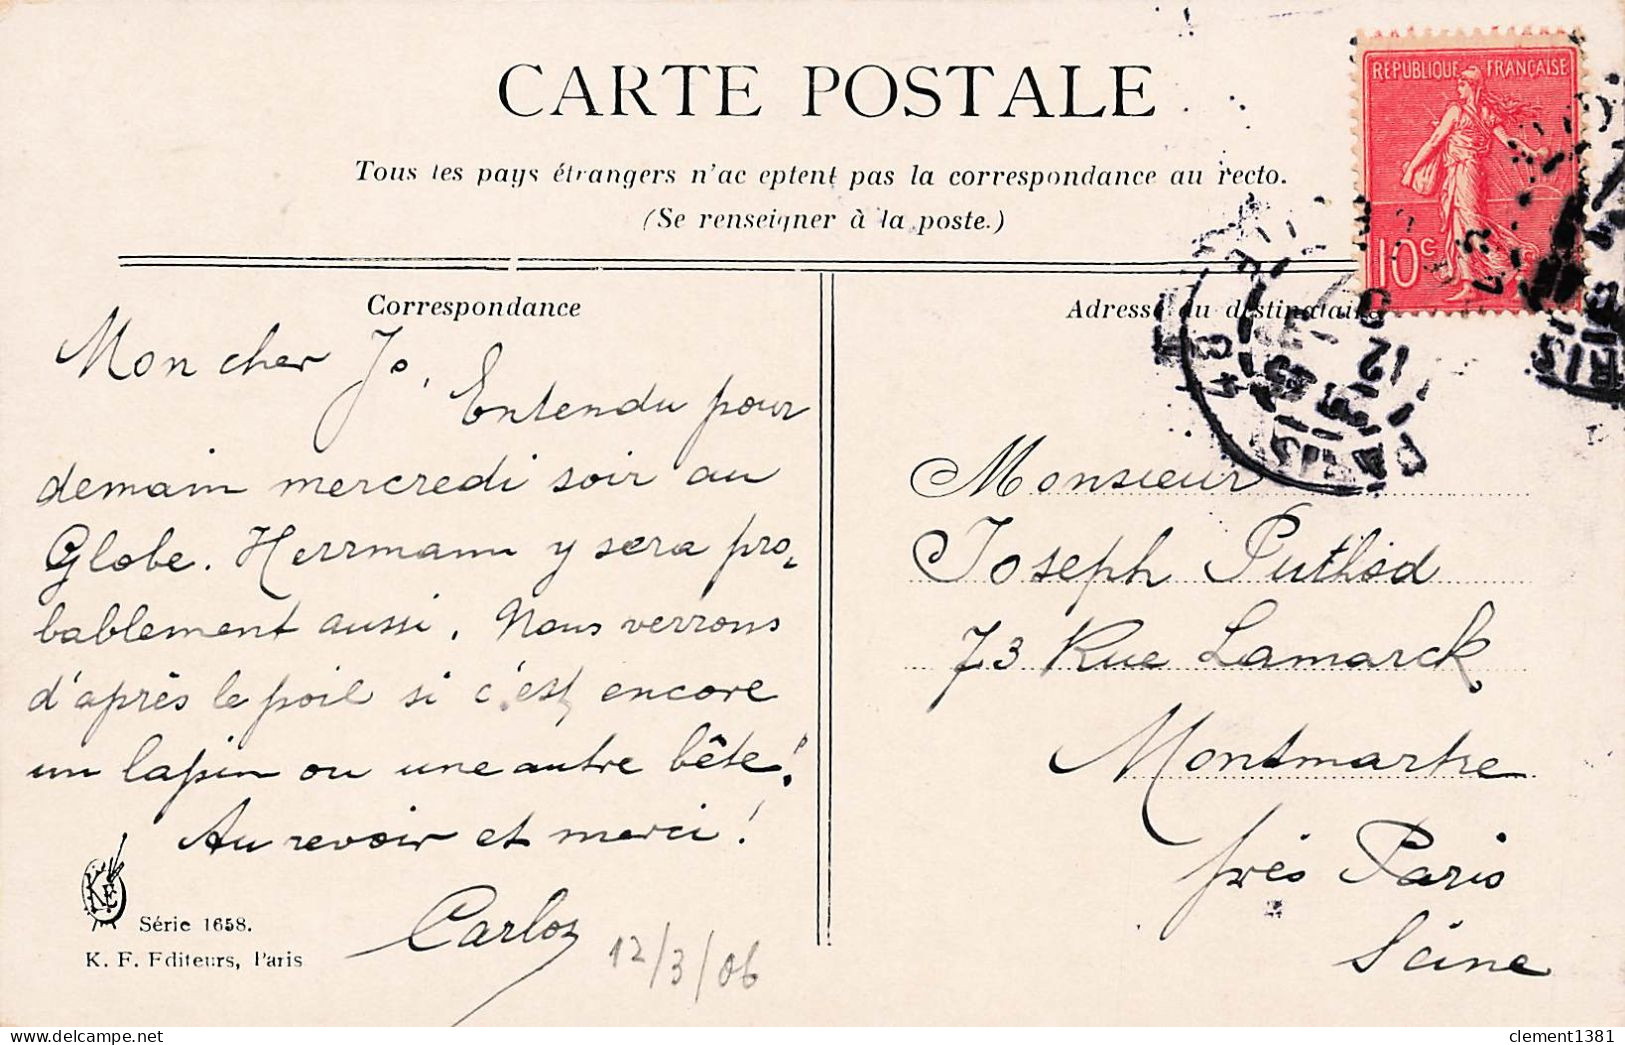 CARTE POSTALE
Tous les pays étrangers n'ac eptent pas la correspondance au recto.
(Se renseigner à la poste.)
REPUBLIQUE FRANÇAISE
10 c
Correspondance
Mon cher Jo,
Entendu pour
demain mercredi soir au
Globe. Herrmann y sera pro-
bablement aussi. Nous verrons
d'après le poil si c'est encore
un lapin ou une autre bête!
Au revoir et merci!
Carlos
12/3/06
KF
Série 1658.
K. F. Editeurs, Paris
Adresse du destinataire
Monsieur
Joseph Puthod
73 Rue Lamarck
Montmartre
près Paris
Seine
PARIS
12
clement1381